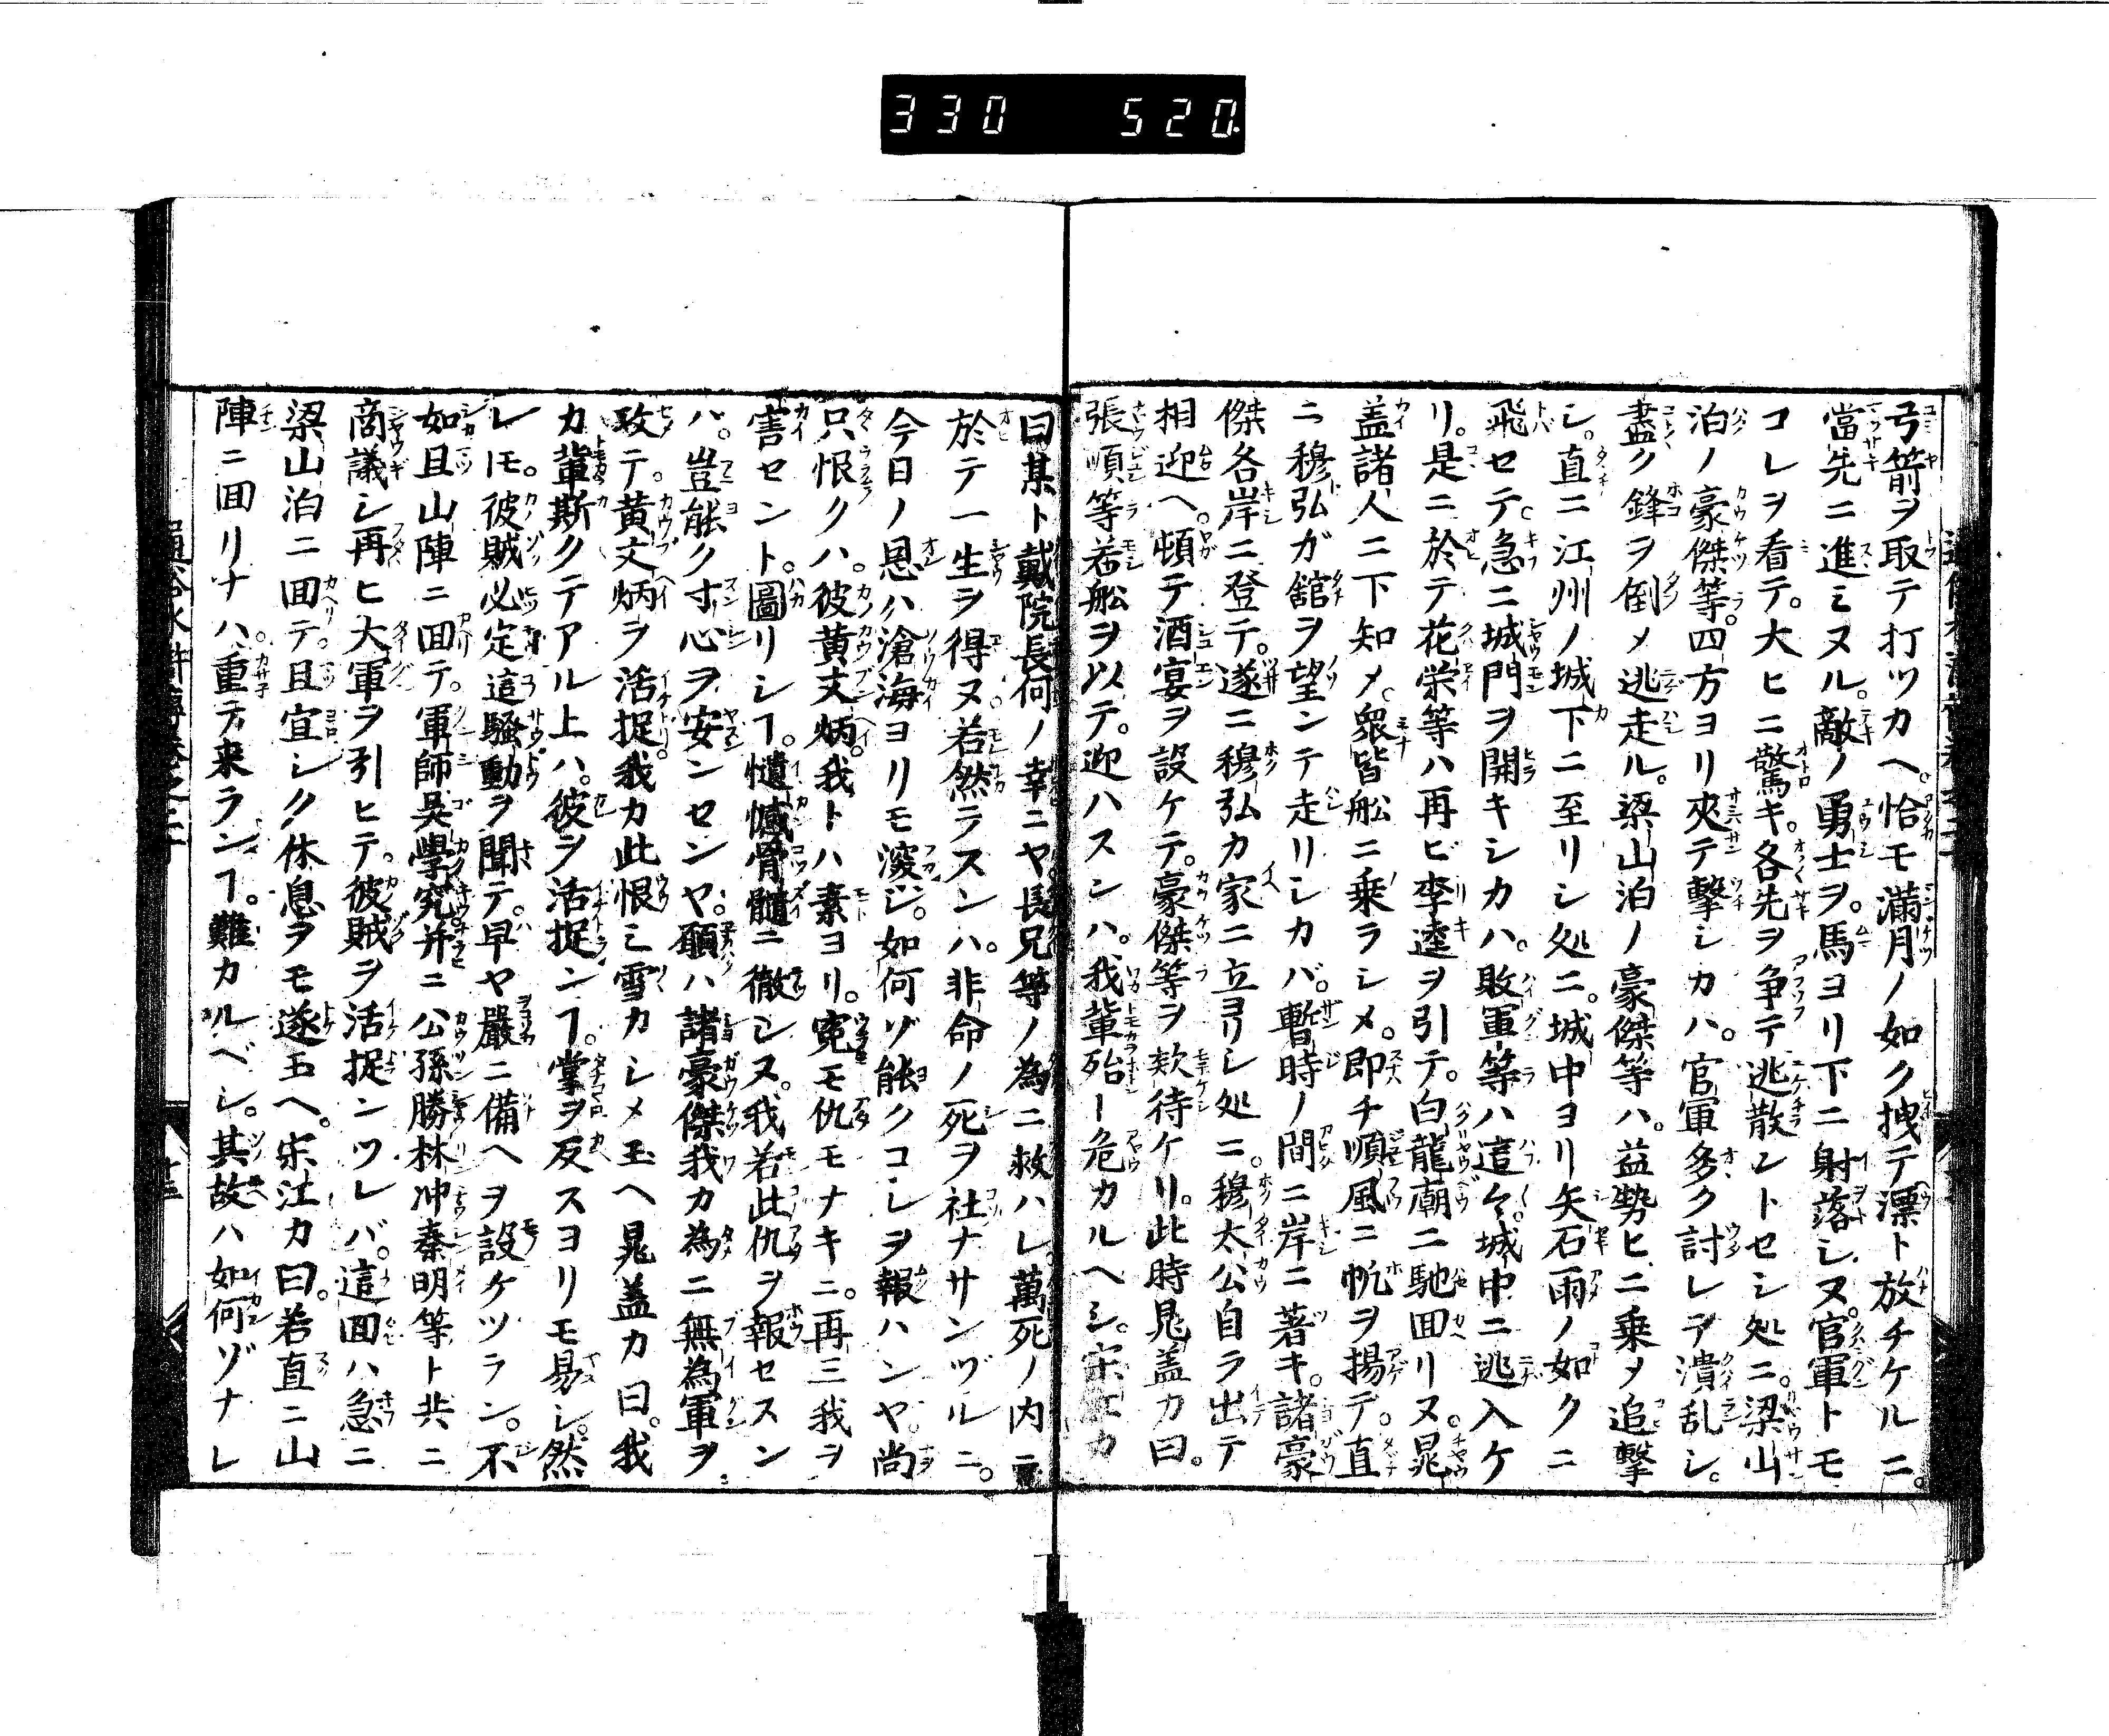 330 520
弓箭ヲ取テ打ツカヘ。恰モ滿月ノ如ク拽テ漂ト放チケルニ。
當先ニ進ミヌル。敵ノ勇士ヲ。馬ヨリ下ニ射落シヌ。官軍トモ
コレヲ看テ。大ヒニ驚キ。各先ヲ争テ逃散ントセシ処ニ。梁山
泊ノ豪傑等。四方ヨリ夾テ擊シカハ。官軍多ク討レテ潰乱シ。
盡ク鋒ヲ倒メ逃走ル。梁山泊ノ豪傑等ハ。益勢ヒニ乗メ追擊
シ。直ニ江州ノ城下ニ至リシ処ニ。城中ヨリ矢石雨ノ如クニ
飛セテ。急ニ城門ヲ開キシカハ。敗軍等ハ這々城中ニ逃入ケ
リ。是ニ於テ花栄等ハ再ビ李逵ヲ引テ。白龍廟ニ馳回リヌ。晁
盖諸人ニ下知メ。衆皆舩ニ乗ラシメ。即チ順風ニ帆ヲ揚テ。直
ニ穆弘ガ舘ヲ望ンテ走リシカバ。暫時ノ間ニ岸ニ著キ。諸豪
傑各岸ニ登テ。遂ニ穆弘カ家ニ立ヨリシ処ニ。穆太公自ラ出テ
相迎ヘ。頓テ酒宴ヲ設ケテ。豪傑等ヲ欵待ケリ。此時晁盖カ曰。
張順等若舩ヲ以テ。迎ハスンハ。我輩殆ー危カルヘシ。宋江カ
曰某ト戴院長何ノ幸ニヤ長兄等ノ為ニ救ハレ萬死ノ内ニ
於テ一生ヲ得ヌ若然ラスンハ。非命ノ死ヲ社ナサンヅルニ。
今日ノ恩ハ滄海ヨリモ深シ。如何ゾ能クコレヲ報ハンヤ。尚
只恨クハ。彼黄文炳。我トハ素ヨリ。寃モ仇モナキニ。再三我ヲ
害セント。圖リシヿ。憾骨髓ニ徹シヌ。我若此仇ヲ報セスン
ハ。豈能ク寸心ヲ安ンセンヤ。願ハ諸豪傑我カ為ニ無為軍ヲ
攻テ。黄文炳ヲ活捉我カ此恨ミ雪カシメ玉ヘ晁盖カ曰。我
カ輩斯クテアル上ハ。彼ヲ活捉ンヿ。掌ヲ反スヨリモ易シ。然
レモ。彼賊必定這騷動ヲ聞テ。早ヤ嚴ニ備ヘヲ設ケツラン。不
如且山陣ニ回テ。軍師吳學究并ニ公孫勝林冲秦明等ト共ニ
商議シ再ヒ大軍ヲ引ヒテ。彼賊ヲ活捉ンツレバ。這回ハ急ニ
梁山泊ニ回テ。且宜シク休息ヲモ遂玉ヘ。宋江カ曰。若直ニ山
陣ニ回リナハ。重テ来ランヿ。難カルベシ。其故ハ如何ゾナレ